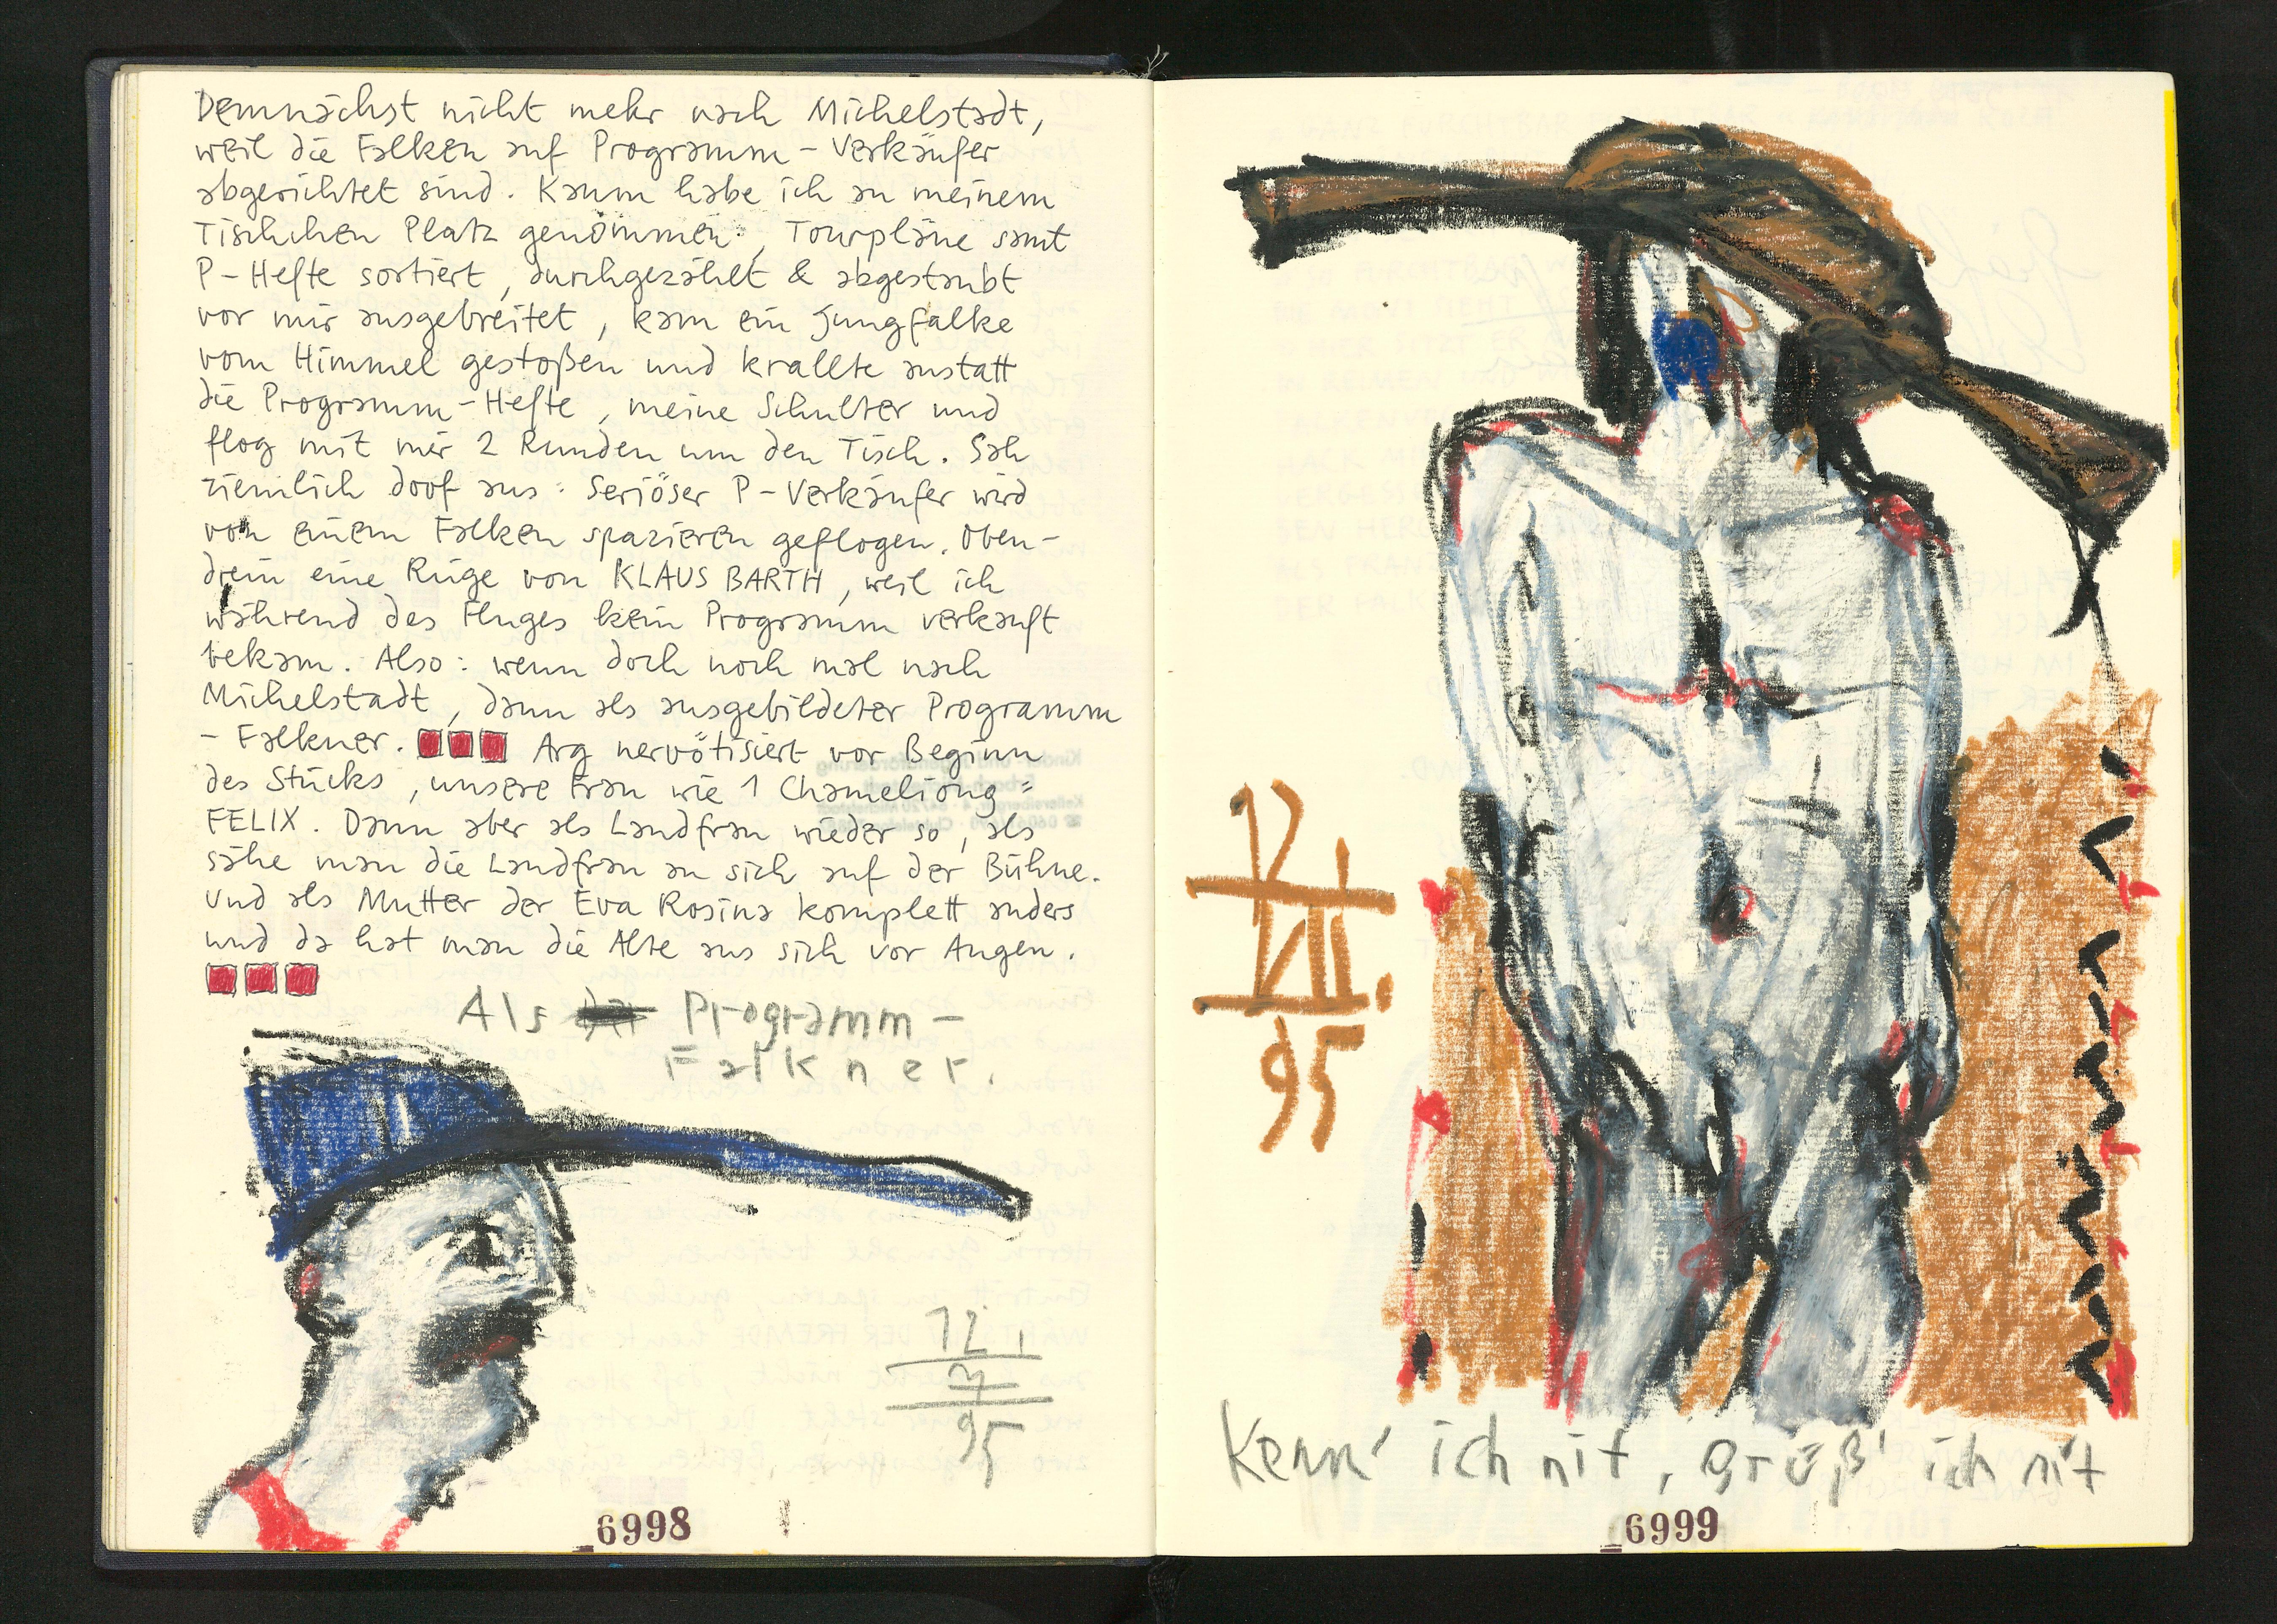 Demnächst nicht mehr nach Michelstadt,
weil die Falken auf Programm-Verkäufer
abgerichtet sind. Kaum habe ich an meinem
Tischchen Platz genommen, Tourpläne samt
P-Hefte sortiert, durchgezählt & abgestaubt
vor mir ausgebreitet, kam ein Jungfalke
vom Himmel gestoßen und krallte anstatt
die Programm-Hefte, meine Schulter und
flog mit mir 2 Runden um den Tisch. Sah
ziemlich doof aus: Seriöser P-Verkäufer wird
von einem Falken spazieren geflogen. Oben-
drein eine Rüge von KLAUS BARTH, weil ich
während des Fluges kein Programm verkauft
bekam. Also: wenn doch noch mal nach
Michelstadt, dann als ausgebildeter Programm
- Falkner. Arg nervötisiert vor Beginn
des Stücks, unsere Frau wie 1 Chameliong =
FELIX. Dann aber als Landfrau wieder so, als
sähe man die Landfrau an sich auf der Bühne.
Und als Mutter der Eva Rosina komplett anders
und da hat man die Alte aus sich vor Augen.
Als Programm-
Falkner.
12.
7
95
6998
12.
VII.
95
Kenn' ich nit, grüß' ich nit
6999